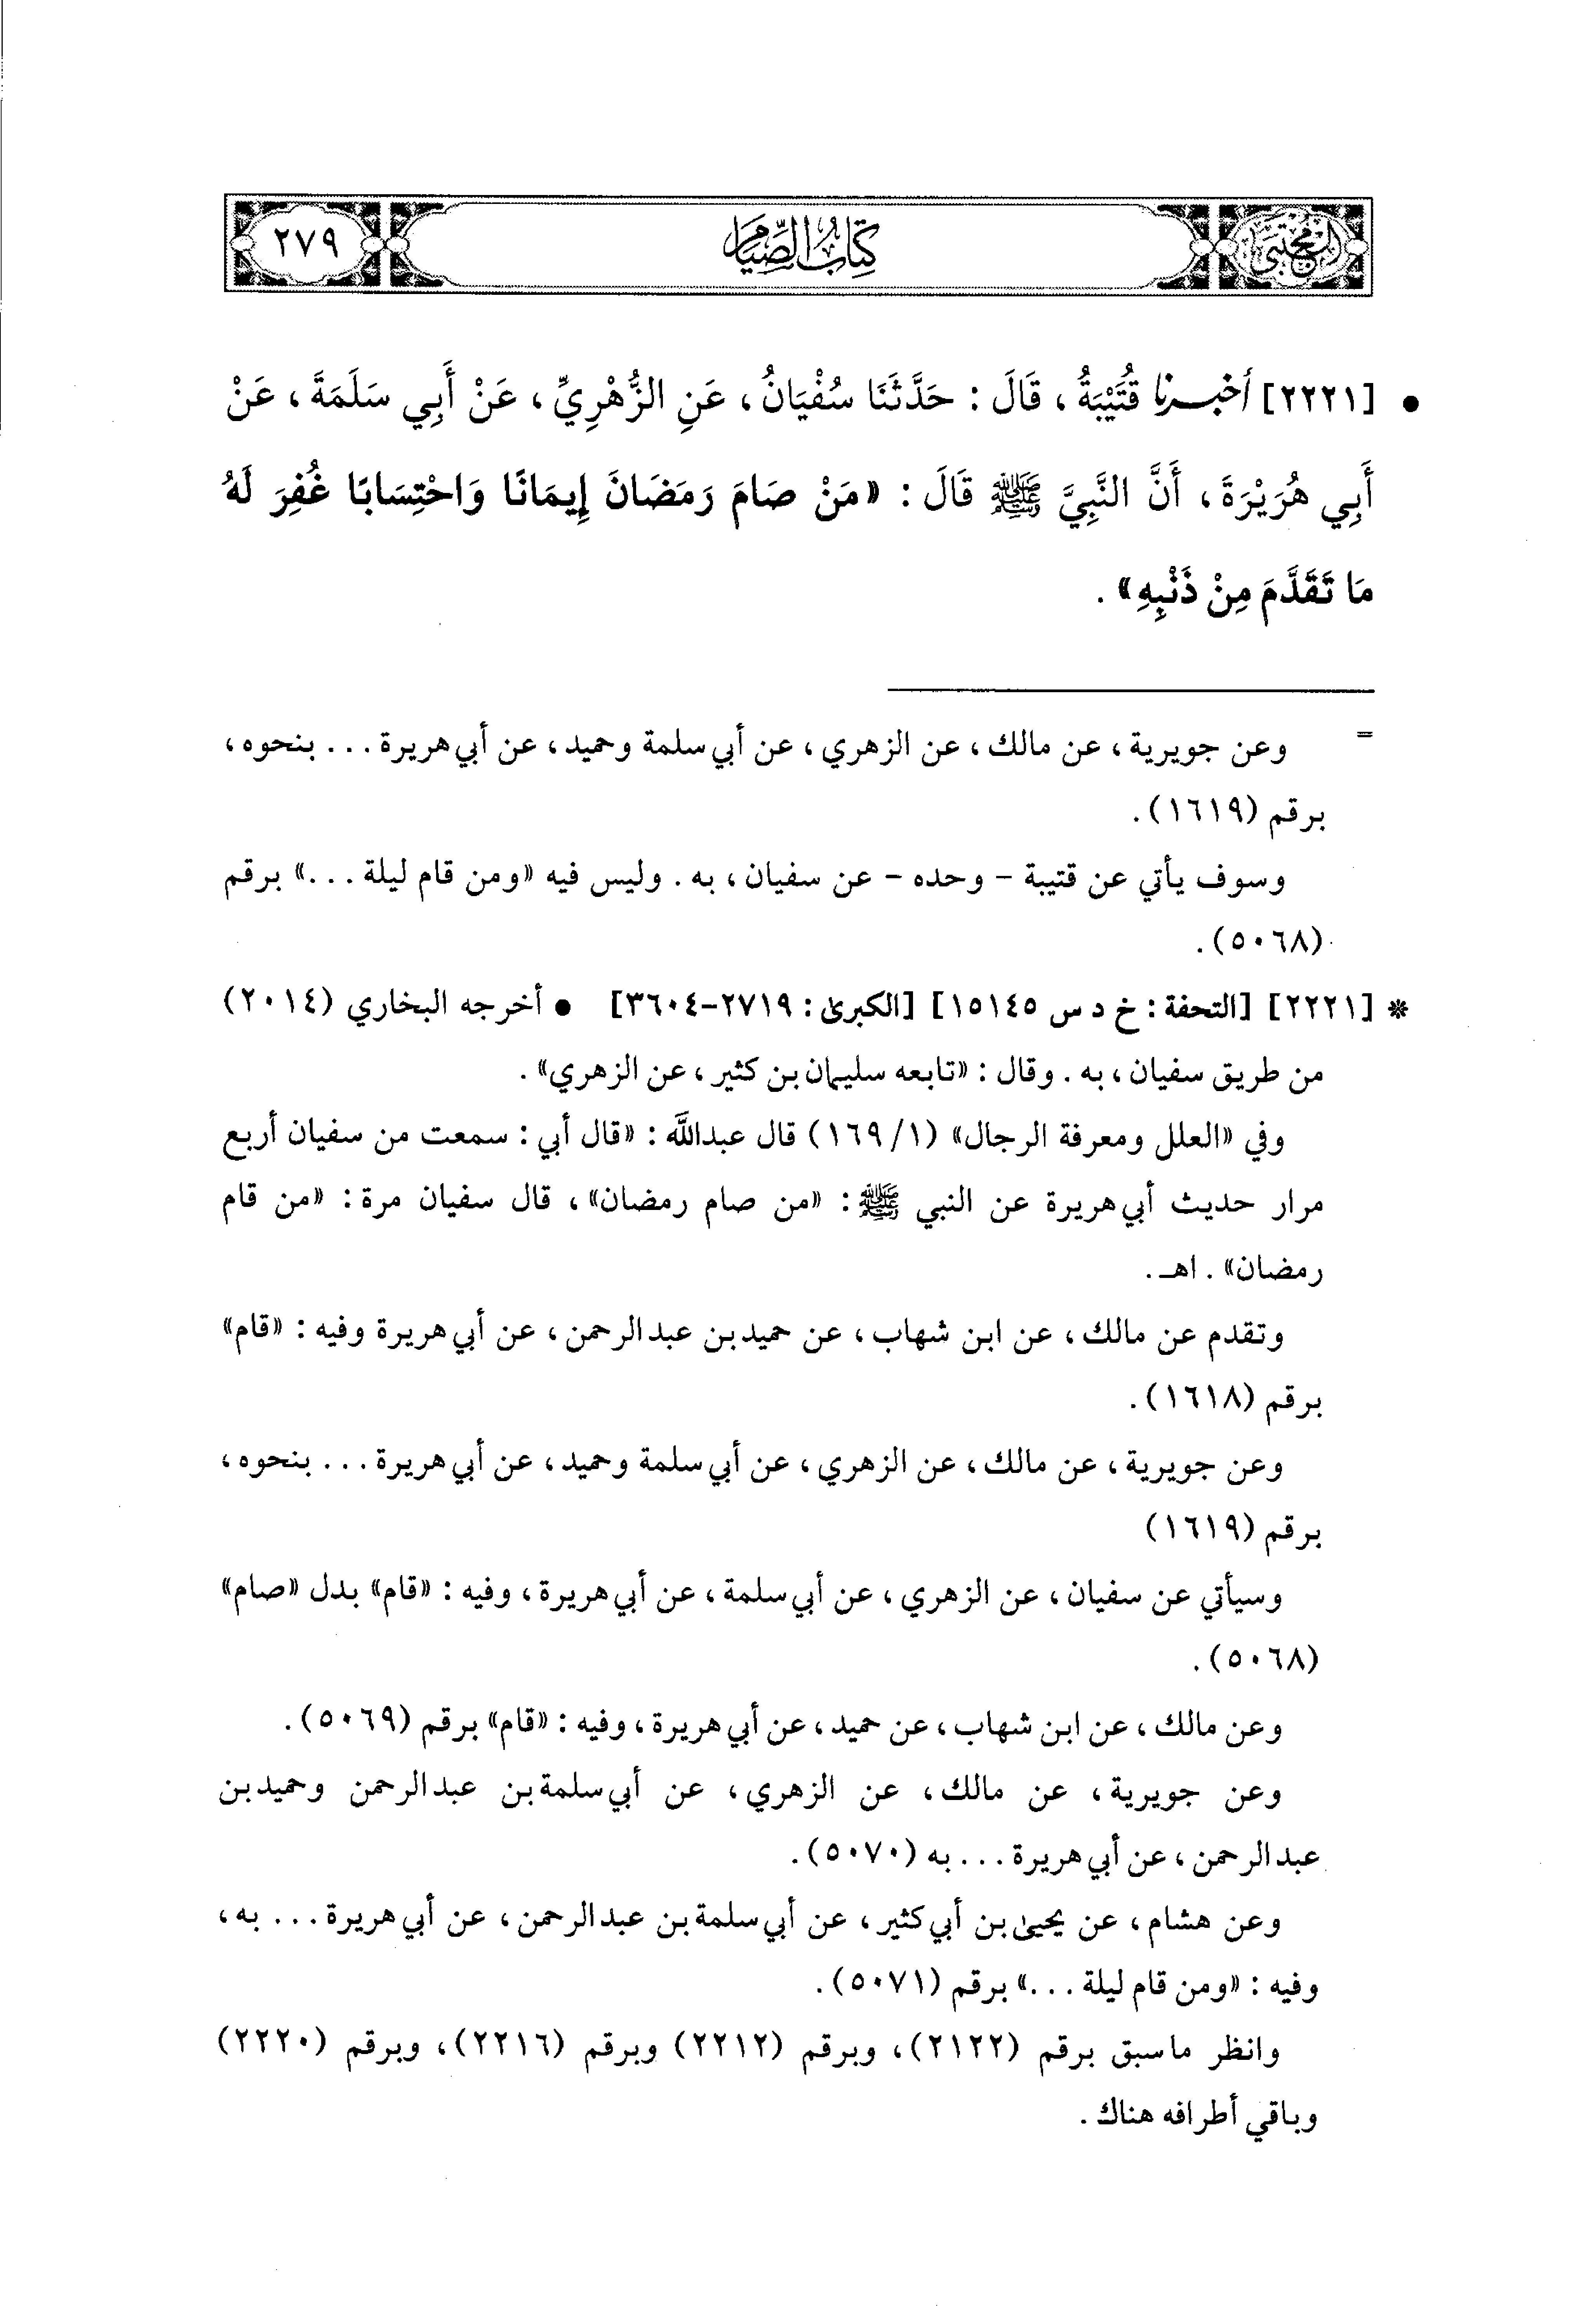 المجتبى
كتاب الصيام
٢٧٩
• [٢٢٢١] أخبرنا قُتَيْبَةُ، قَالَ: حَدَّثَنَا سُفْيَانُ، عَنِ الزُّهْرِيِّ، عَنْ أَبِي سَلَمَةَ، عَنْ
أَبِي هُرَيْرَةَ، أَنَّ النَّبِيَّ ﷺ قَالَ: «مَنْ صَامَ رَمَضَانَ إِيمَانًا وَاحْتِسَابًا غُفِرَ لَهُ
مَا تَقَدَّمَ مِنْ ذَنْبِهِ».
= وعن جويرية، عن مالك، عن الزهري، عن أبي سلمة وحميد، عن أبي هريرة... بنحوه،
برقم (١٦١٩).
وسوف يأتي عن قتيبة - وحده - عن سفيان، به. وليس فيه «ومن قام ليلة...» برقم
(٥٠٦٨).
* [٢٢٢١] [التحفة: خ د س ١٥١٤٥] [الكبرى: ٢٧١٩-٣٦٠٤] • أخرجه البخاري (٢٠١٤)
من طريق سفيان، به. وقال: «تابعه سليمان بن كثير، عن الزهري».
وفي «العلل ومعرفة الرجال» (١/١٦٩) قال عبدالله: «قال أبي: سمعت من سفيان أربع
مرار حديث أبي هريرة عن النبي ﷺ: «من صام رمضان»، قال سفيان مرة: «من قام
رمضان». اهـ.
وتقدم عن مالك، عن ابن شهاب، عن حميد بن عبد الرحمن، عن أبي هريرة وفيه: «قام»
برقم (١٦١٨).
وعن جويرية، عن مالك، عن الزهري، عن أبي سلمة وحميد، عن أبي هريرة... بنحوه،
برقم (١٦١٩)
وسيأتي عن سفيان، عن الزهري، عن أبي سلمة، عن أبي هريرة، وفيه: «قام» بدل «صام»
(٥٠٦٨).
وعن مالك، عن ابن شهاب، عن حميد، عن أبي هريرة، وفيه: «قام» برقم (٥٠٦٩).
وعن جويرية، عن مالك، عن الزهري، عن أبي سلمة بن عبد الرحمن وحميد بن
عبد الرحمن، عن أبي هريرة... به (٥٠٧٠).
وعن هشام، عن يحيى بن أبي كثير، عن أبي سلمة بن عبد الرحمن، عن أبي هريرة... به،
وفيه: «ومن قام ليلة...» برقم (٥٠٧١).
وانظر ما سبق برقم (٢١٢٢)، وبرقم (٢٢١٢) وبرقم (٢٢١٦)، وبرقم (٢٢٢٠)
وباقي أطرافه هناك.